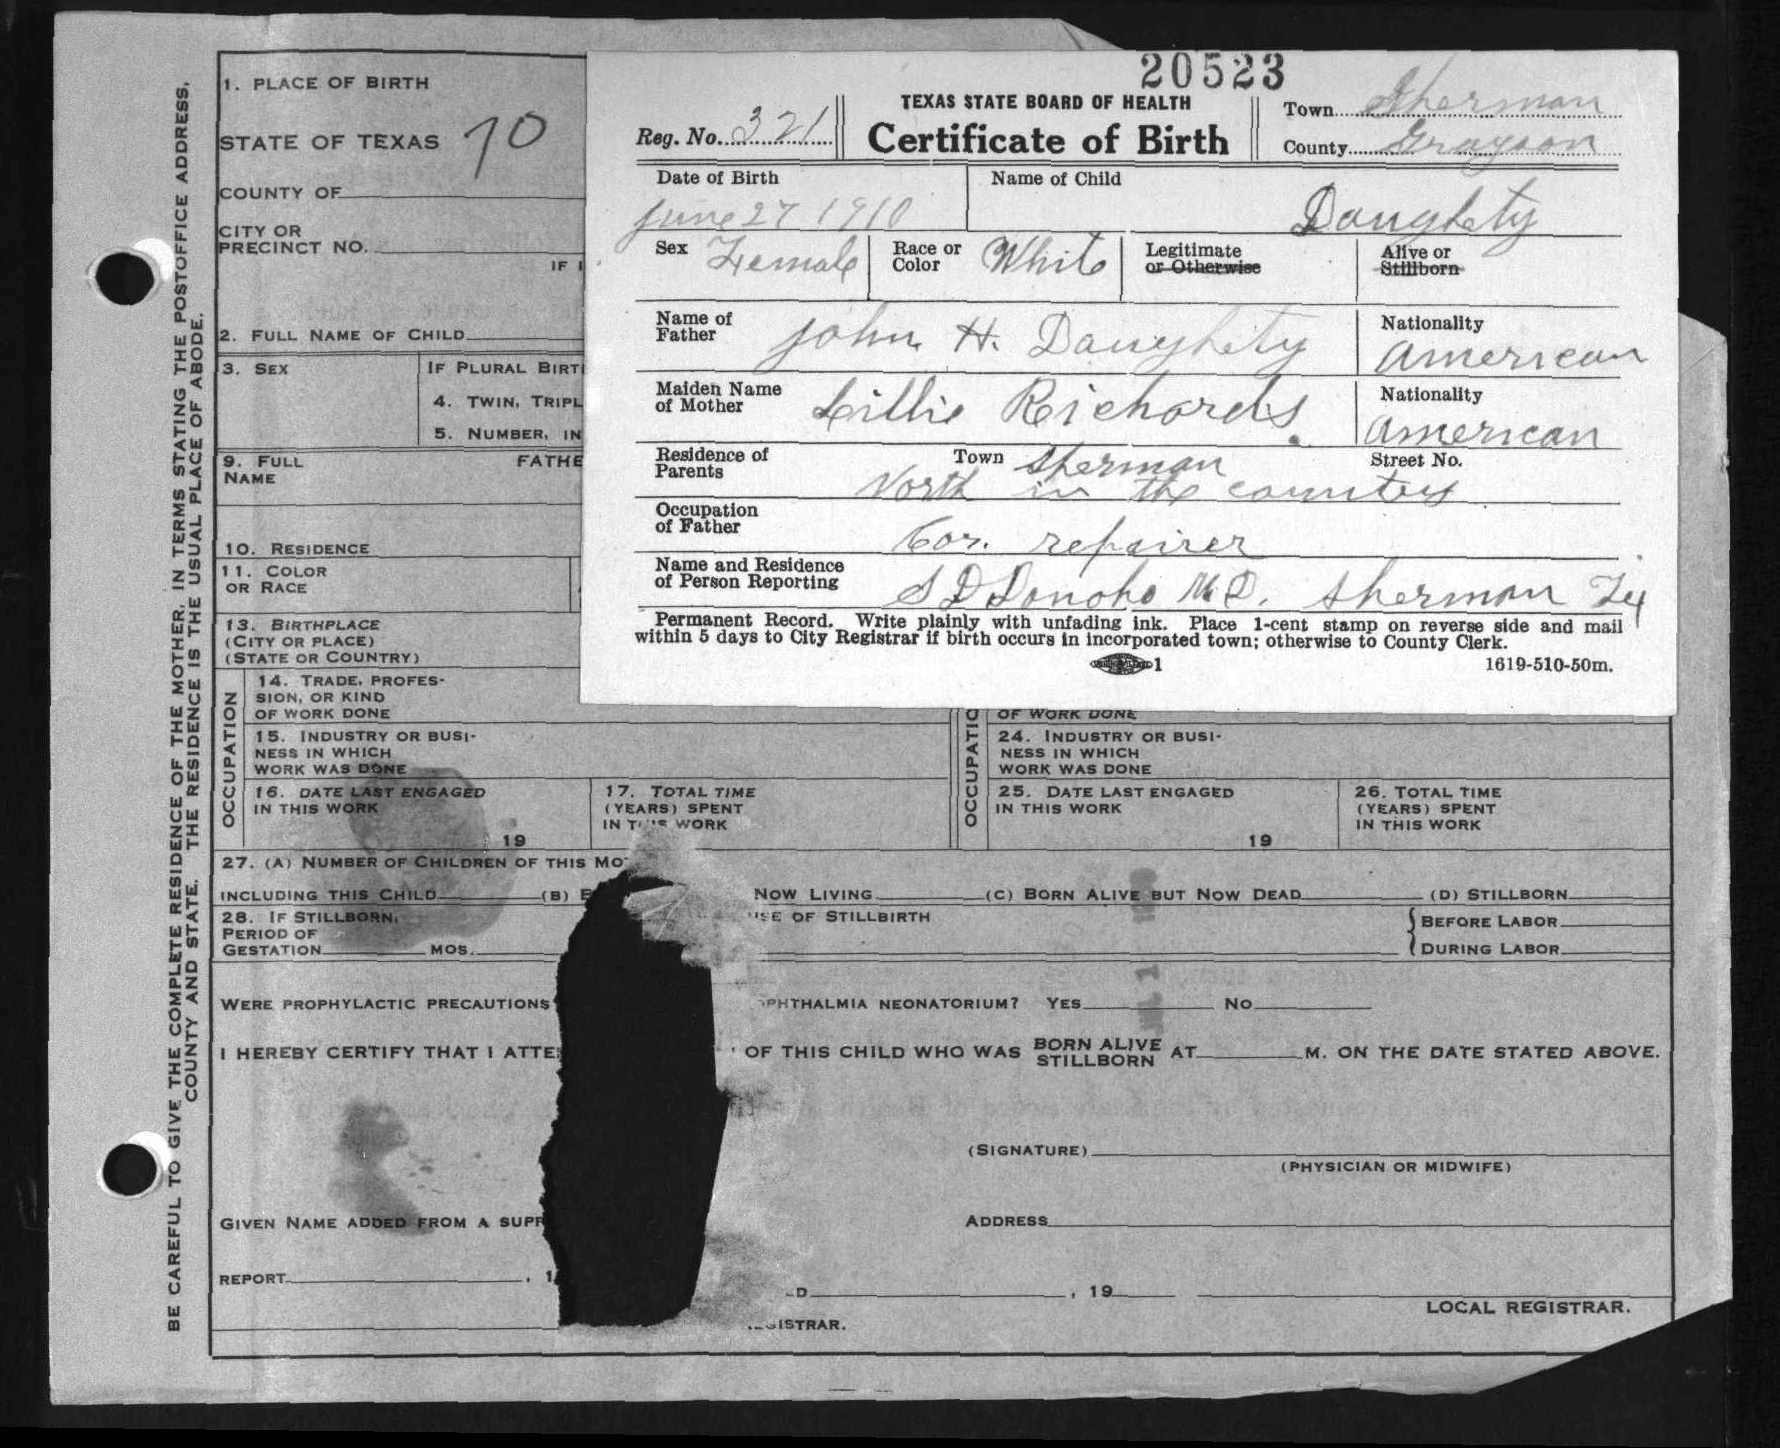 BE CAREFUL TO GIVE THE COMPLETE RESIDENCE OF THE MOTHER, IN TERMS STATING THE POSTOFFICE ADDRESS,
COUNTY AND STATE. THE RESIDENCE IS THE USUAL PLACE OF ABODE.
1. PLACE OF BIRTH
STATE OF TEXAS 70
COUNTY OF
CITY OR
PRECINCT NO.
IF
2. FULL NAME OF CHILD
3. SEX
IF PLURAL BIRT
4. TWIN, TRIPL
5. NUMBER, IN
9. FULL FATHE
NAME
10. RESIDENCE
11. COLOR
OR RACE
13. BIRTHPLACE
(CITY OR PLACE)
(STATE OR COUNTRY)
20523
Reg. No. 321
TEXAS STATE BOARD OF HEALTH
Certificate of Birth
Town Sherman
County Grayson
Date of Birth
June 27 1910
Name of Child
Daughety
Sex Female
Race or
Color White
Legitimate
or Otherwise
Alive or
Stillborn
Name of
Father John H. Daughety
Nationality
American
Maiden Name
of Mother Lillie Richards
Nationality
American
Residence of
Parents
Town Sherman
Street No.
North in the country
Occupation
of Father Car. repairer
Name and Residence
of Person Reporting S D Donoho M.D. Sherman Tex
Permanent Record. Write plainly with unfading ink. Place 1-cent stamp on reverse side and mail
within 5 days to City Registrar if birth occurs in incorporated town; otherwise to County Clerk.
1
1619-510-50m.
OCCUPATION
14. TRADE, PROFES-
SION, OR KIND
OF WORK DONE
15. INDUSTRY OR BUSI-
NESS IN WHICH
WORK WAS DONE
16. DATE LAST ENGAGED
IN THIS WORK
19
17. TOTAL TIME
(YEARS) SPENT
IN THIS WORK
OCCUPATIO
OF WORK DONE
24. INDUSTRY OR BUSI-
NESS IN WHICH
WORK WAS DONE
25. DATE LAST ENGAGED
IN THIS WORK
19
26. TOTAL TIME
(YEARS) SPENT
IN THIS WORK
27. (A) NUMBER OF CHILDREN OF THIS MO
INCLUDING THIS CHILD (B) B NOW LIVING (C) BORN ALIVE BUT NOW DEAD (D) STILLBORN
28. IF STILLBORN,
PERIOD OF
GESTATION MOS.
USE OF STILLBIRTH
BEFORE LABOR
DURING LABOR
WERE PROPHYLACTIC PRECAUTIONS OPHTHALMIA NEONATORIUM? YES NO
I HEREBY CERTIFY THAT I ATTE OF THIS CHILD WHO WAS BORN ALIVE
STILLBORN AT M. ON THE DATE STATED ABOVE.
(SIGNATURE)
(PHYSICIAN OR MIDWIFE)
GIVEN NAME ADDED FROM A SUPP
ADDRESS
REPORT , 1
D , 19
LOCAL REGISTRAR.
GISTRAR.